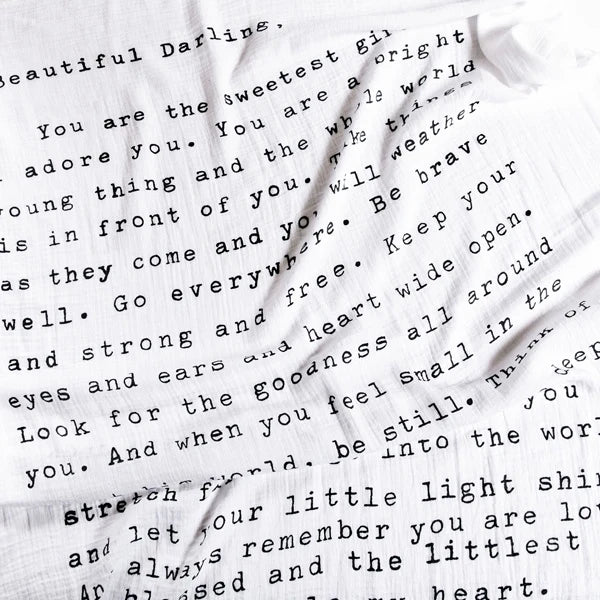 Beautiful Darling,
You are the sweetest
adore you. You are a bright
young thing and the whole world
is in front of you. Take things
as they come and you will weather
well. Go everywhere. Be brave
and strong and free. Keep your
eyes and ears and heart wide open.
Look for the goodness all around
you. And when you feel small in the
world, be still. Think of
stretch
deep
you
into the
and let your little light
always remember you are
and the littlest
heart.